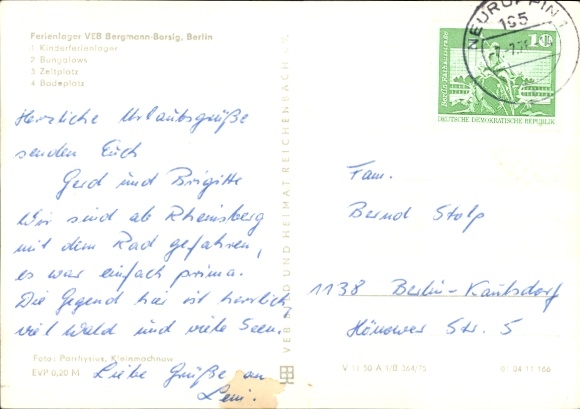 Ferienlager VEB Bergmann-Borsig, Berlin
1 Kinderferienlager
2 Bungalows
3 Zeltplatz
4 Badeplatz
Herzliche Urlaubsgrüße
senden Euch
Gerd und Brigitte
Wir sind ab Rheinsberg
mit dem Rad gefahren,
es war einfach prima.
Die Gegend hier ist herrlich
viel Wald und viele Seen.
Liebe Grüße an
Leni.
Foto: Parthysius, Kleinmachnow
EVP 0,20 M
VEB BILD UND HEIMAT REICHENBACH
NEURUPPIN 1
195
10
Berlin-Rathausstraße
DEUTSCHE DEMOKRATISCHE REPUBLIK
Fam.
Bernd Stolp
1138 Berlin-Kaulsdorf
Hönower Str. 5
V 11 50 A 1/B 364/75
01 04 11 166